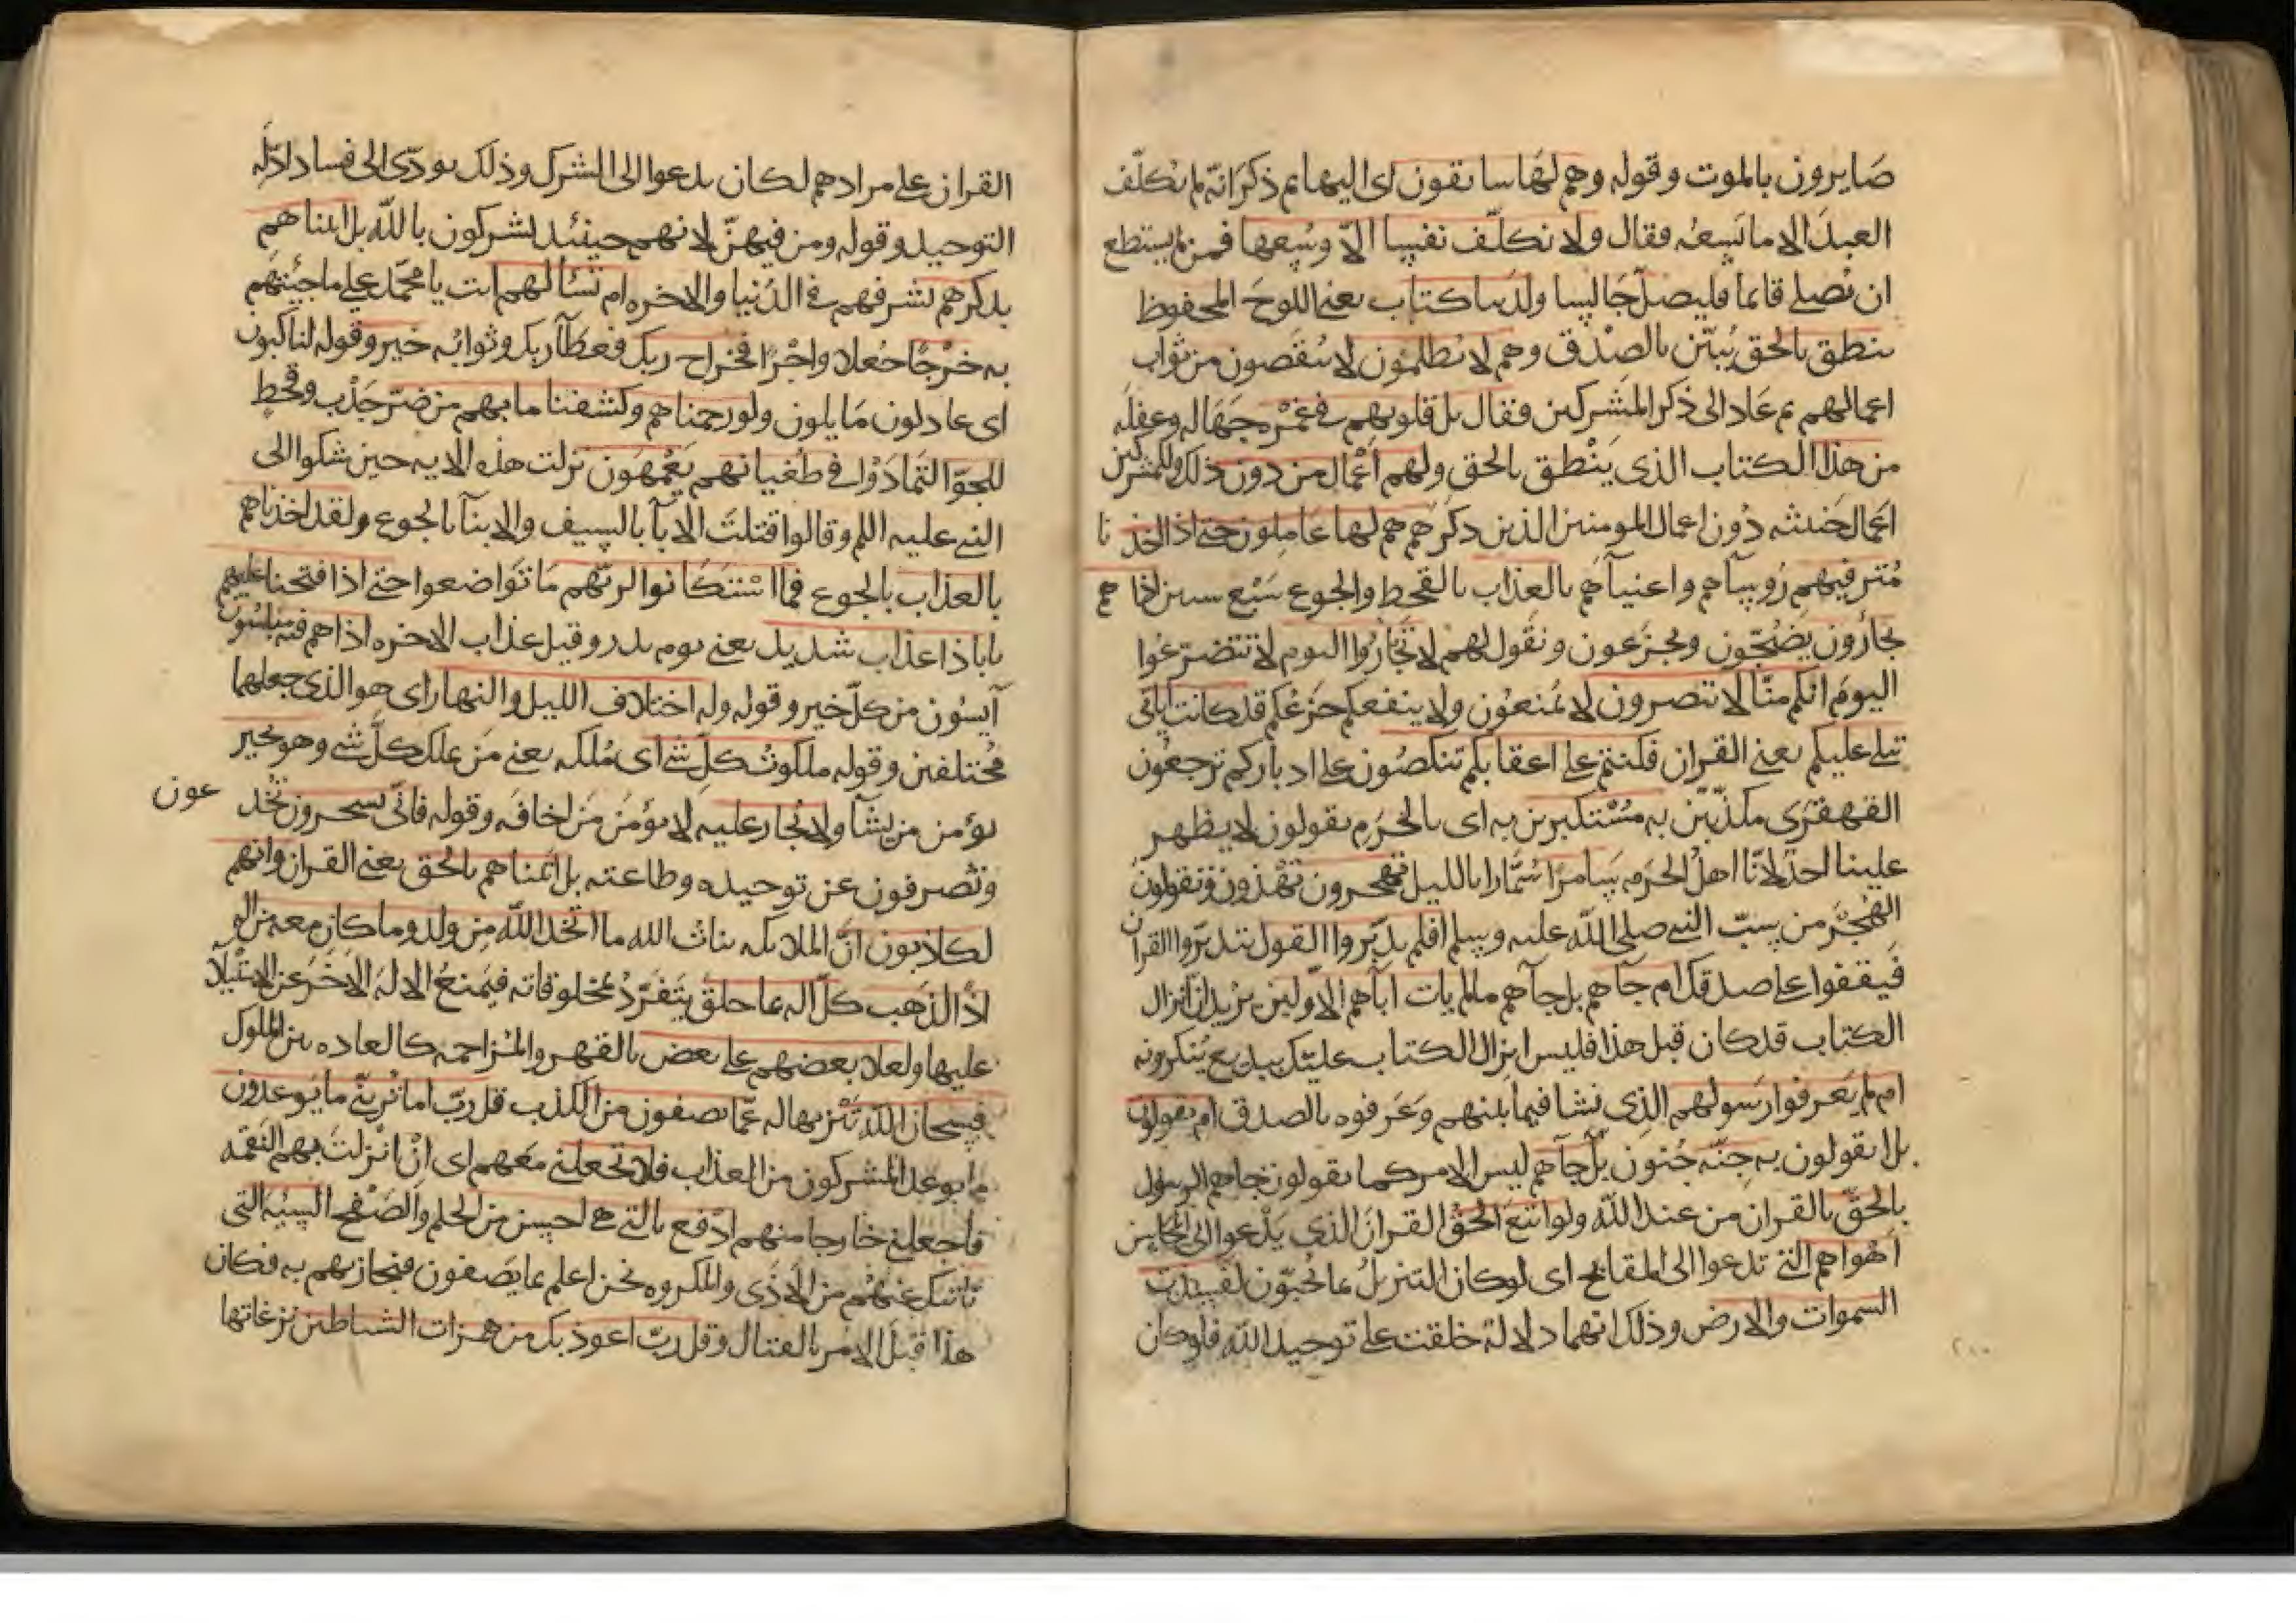 صَايرون بالموت وقوله وهم لهَا سابقون اى اليها ثم ذكر انّه لم يكلّف
العبدَ الا ما يَسِعُه فقال ولا نكلّف نفسا الّا وُسْعها فمن لم يستطع
ان يُصلى قائما فليصلّ جَالِسا ولدينا كتاب يعنى اللوحَ المحفوظ
ينطق بالحق يُبيّن بالصِدْق وهم لا يُظلمُون لا يُنقَصون من ثواب
اعمالهم ثم عَاد الى ذكر المشركين فقال بل قلوبهم فى غَمْرة جَهَاله وغفله
من هذا الكتاب الذى يَنْطق بالحق ولهم أعْمال من دون ذلك وللمشركين
اعمال خبيثه دُون اعمال المومنين الذين ذكرهم هم لها عَاملون حتى اذا اخذنا
مُترفيهم رُوسآهم واغنيآهم بالعذاب بالقحط والجوع سَبْع سنين اذا هم
يجأرُون يضجّون ويجزَعون ونقول لهم لا تجأرُوا اليوم لا تتضرّعُوا
اليومَ انكم منّا لا تنصرون لا تمنعُون ولا ينفعكم جَزَعُكم قد كانت اياتى
تتلى عليكم يعنى القران فكنتم على اعقابكم تنكصُون على ادباركم ترجعُون
القهقرَى مكذّبين به مُسْتكبرين به اى بالحَرَم يقولون لا يظهر
علينا احدٌ لانّا اهلُ الحَرَم سَامرًا سُمّارا بالليل تهجرون تهْذون وتقولون
الهُجْرَ من سبّ النبى صلى الله عليه وسلم افلم يدّبّروا القول يتدبّروا القران
فيقفوا على صدقك ام جآهم بل جآهم ما لم يات ابآهم الاولين يريد ان انزال
الكتاب قد كان قبل هذا فليس انزال الكتاب عليك ببديع يُنكرونه
ام لم يَعرفوا رَسولهم الذى نشا فيما بينهم وعَرَفوه بالصدق ام يقولون
بل ايقولون به جنّه جُنون بل جآهم ليس الامر كما يقولون جاهم الرسول
بالحَقّ بالقران من عند الله ولو اتبَعَ الحَقُّ القرانَ الذى يَدْعوا الى المحاسن
اهْواهم التى تدعوا الى المقابح اى لو كان التنزيلُ بما يُحبّون لفسدت
السموات والارض وذلك انهما دلالة خلقت على توحيد الله فلو كان
القران على مرادهم لكان يدعوا الى الشرك وذلك يودّى الى فساد ادلّه
التوحيد وقوله ومن فيهنّ لانهم حينئذ يشركون بالله بل اتيناهم
بذكرهم بشرفهم فى الدّنيا والاخره ام تسألهم انت يا محمّد على ما جئتهم
به خَرْجًا جُعلا واجْرًا فخراج ربك فعطآ ربك وثوابُه خير وقوله لناكبون
اى عادلون مَايلون ولو رحمناهم وكشفنا ما بهم من ضرّ جَدْب وقحطٍ
للجّوا لتَمادَوْا فى طغيانهم يَعْمهُون نزلت هذه الايه حين شكوا الى
النبى عليه السلم وقالوا قتلتَ الابآ بالسيف والابنآ بالجوع ولقد اخذناهم
بالعذاب بالجوع فما اسْتكانوا لربّهم مَا تَواضعوا حتى اذا فتحنا عليهم
بابا ذا عذاب شديد يعنى يوم بدر وقيل عذاب الاخره اذا هم فيه مبلسُون
آيسُون من كلّ خير وقوله وله اختلاف الليل والنهار اى هو الذى جعلهما
مُختلفين وقوله ملكوتُ كلّ شى اى مُلكه يعنى مَن يملك كلَّ شى وهو يجير
يؤمن من يشآ ولا يُجار عليه لا يؤمَن مَن اخافَه وقوله فانّى تسحرون تُخْدعون
وتُصرفون عن توحيده وطاعته بل اتيناهم بالحق يعنى القران وانهم
لكاذبون انّ الملايكه بناتُ الله ما اتخذ الله مِن ولد وما كان معه من اله
اذًا لذهَب كلّ اله بما خلق يتَفرّدُ بمخلوقاته فيَمنعُ الالهَ الاخَرَ عن الاستيلآ
عليها ولعلا بعضهم على بعض بالقهر والمُزاحمه كالعاده بين الملوك
فسبحان الله تَنْزيها له عمّا يصفون من الكذب قل ربّ اما تُريَنّى ما يُوعدون
ما يوعد المشركون من العذاب فلا تجعلنى معَهم اى انْ انْزلتَ بهم النقمه
فاجعلنى خارجا منهم ادْفع بالتى هى احسن من الحلم والصَفْح السيئه التى
تاتيك عنْهُم من الاذى والمكروه نحن اعلم بما يَصفون فنجازيهم به فكان
هذا قبْل الامر بالقتال وقل ربّ اعوذ بك من همزات الشياطين نزغاتها